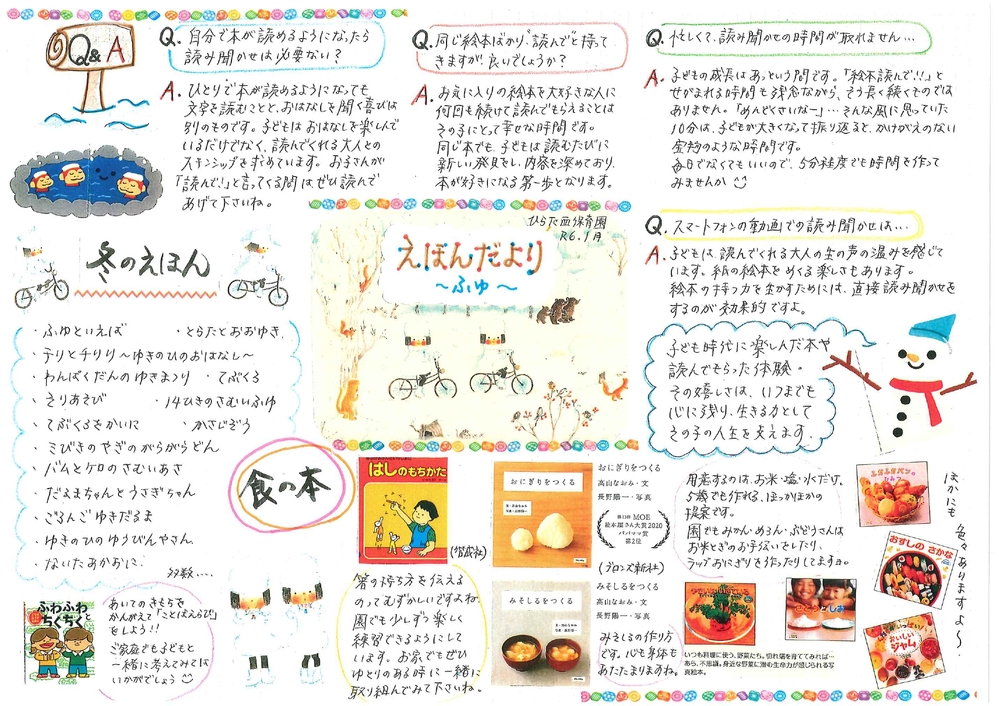 Q&A
Q. 自分で本が読めるようになったら
読み聞かせは必要ない?
A. ひとりで本が読めるようになっても
文字を読むことと、おはなしを聞く喜びは
別のものです。子どもは おはなしを楽しんで
いるだけでなく、読んでくれる大人との
スキンシップを求めています。お子さんが
「読んで!」と言ってくる間は ぜひ読んで
あげて下さいね。
Q. 同じ絵本ばかり、"読んで"と持って
きますが、良いでしょうか?
A. お気に入りの絵本を大好きな人に
何回も続けて読んでもらえることは
その子にとって幸せな時間です。
同じ本でも、子どもは読むたびに
新しい発見をし、内容を深めており、
本が好きになる第一歩となります。
Q. 忙しくて、読み聞かせの時間が取れません…
A. 子どもの成長はあっという間です。「絵本読んで!!」と
せがまれる時間も残念ながら、そう長く続くものでは
ありません。「めんどくさいなー」…そんな風に思っていた
10分は、子どもが大きくなって振り返ると、かけがえのない
宝物のような時間です。
毎日でなくてもいいので、5分程度でも時間を作って
みませんか
Q. スマートフォンの動画での読み聞かせは…
A. 子どもは、読んでくれる大人の生の声の温みを感じて
います。紙の絵本をめくる楽しさもあります。
絵本の持つ力を生かすためには、直接読み聞かせを
するのが効果的ですよ。
ひらた西保育園
R6.1月
えほんだより
~ふゆ~
冬のえほん
・ふゆといえば
・とらたとおおゆき
・テリとチリリ~ゆきのひのおはなし~
・わんぱくだんのゆきまつり
・てぶくろ
・そりあそび
・14ひきのさむいふゆ
・てぶくろをかいに
・かさじぞう
・ミびきのやぎのがらがらどん
・バムとケロのさむいあさ
・だるまちゃんとうさぎちゃん
・ごろんごゆきだるま
・ゆきのひのゆうびんやさん
・ないたあかおに
多数…
子ども時代に楽しんだ本や
読んでもらった体験。
その嬉しさは、いつまでも
心に残り、生きる力として
その子の人生を支えます。
食の本
はしのもちかた
(偕成社)
おにぎりをつくる
おにぎりをつくる
高山なおみ・文
長野陽一・写真
第13回 MOE
絵本屋さん大賞2020
パパママ賞
第2位
(ブロンズ新社)
用意するのは、お米・塩・水だけ。
5歳でも作れる、ほっかほかの
提案です。
園でもみかん・めろん・ぶどうさんは
お米とぎのお手伝いをしたり、
ラップおにぎりを作ったりしてますヨ。
ほかにも
色々ありますよ~
ふわふわと
ちくちく
あいてのきもちを
かんがえて「ことばえらび」
をしよう!!
ご家庭でも子どもと
一緒に考えてみては
いかがでしょう
箸の持ち方を伝える
のってむずかしいですよね。
園でも少しずつ楽しく
練習できるようにして
います。お家でもぜひ
ゆとりのある時に一緒に
取り組んでみて下さいね。
みそしるをつくる
みそしるをつくる
高山なおみ・文
長野陽一・写真
みそしるの作り方
です。心も身体も
あたたまりますね。
いつも料理に使う、野菜たち。切れ端を育ててみれば…
あら、不思議。身近な野菜に潜む生命力が感じられる写
真絵本。
おすしの さかな
おいしい
ジャム